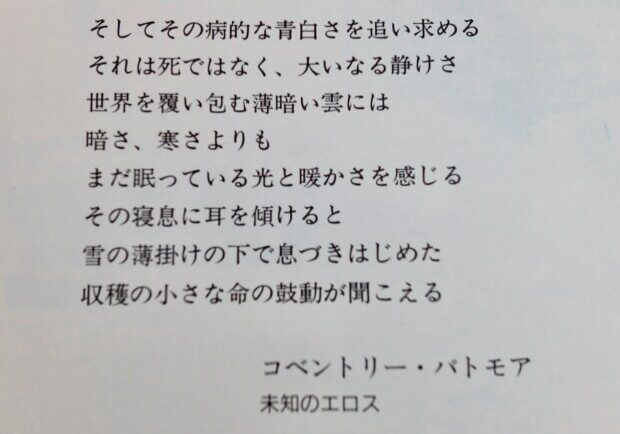 そしてその病的な青白さを追い求める
それは死ではなく、大いなる静けさ
世界を覆い包む薄暗い雲には
暗さ、寒さよりも
まだ眠っている光と暖かさを感じる
その寝息に耳を傾けると
雪の薄掛けの下で息づきはじめた
収穫の小さな命の鼓動が聞こえる
コベントリー・パトモア
未知のエロス